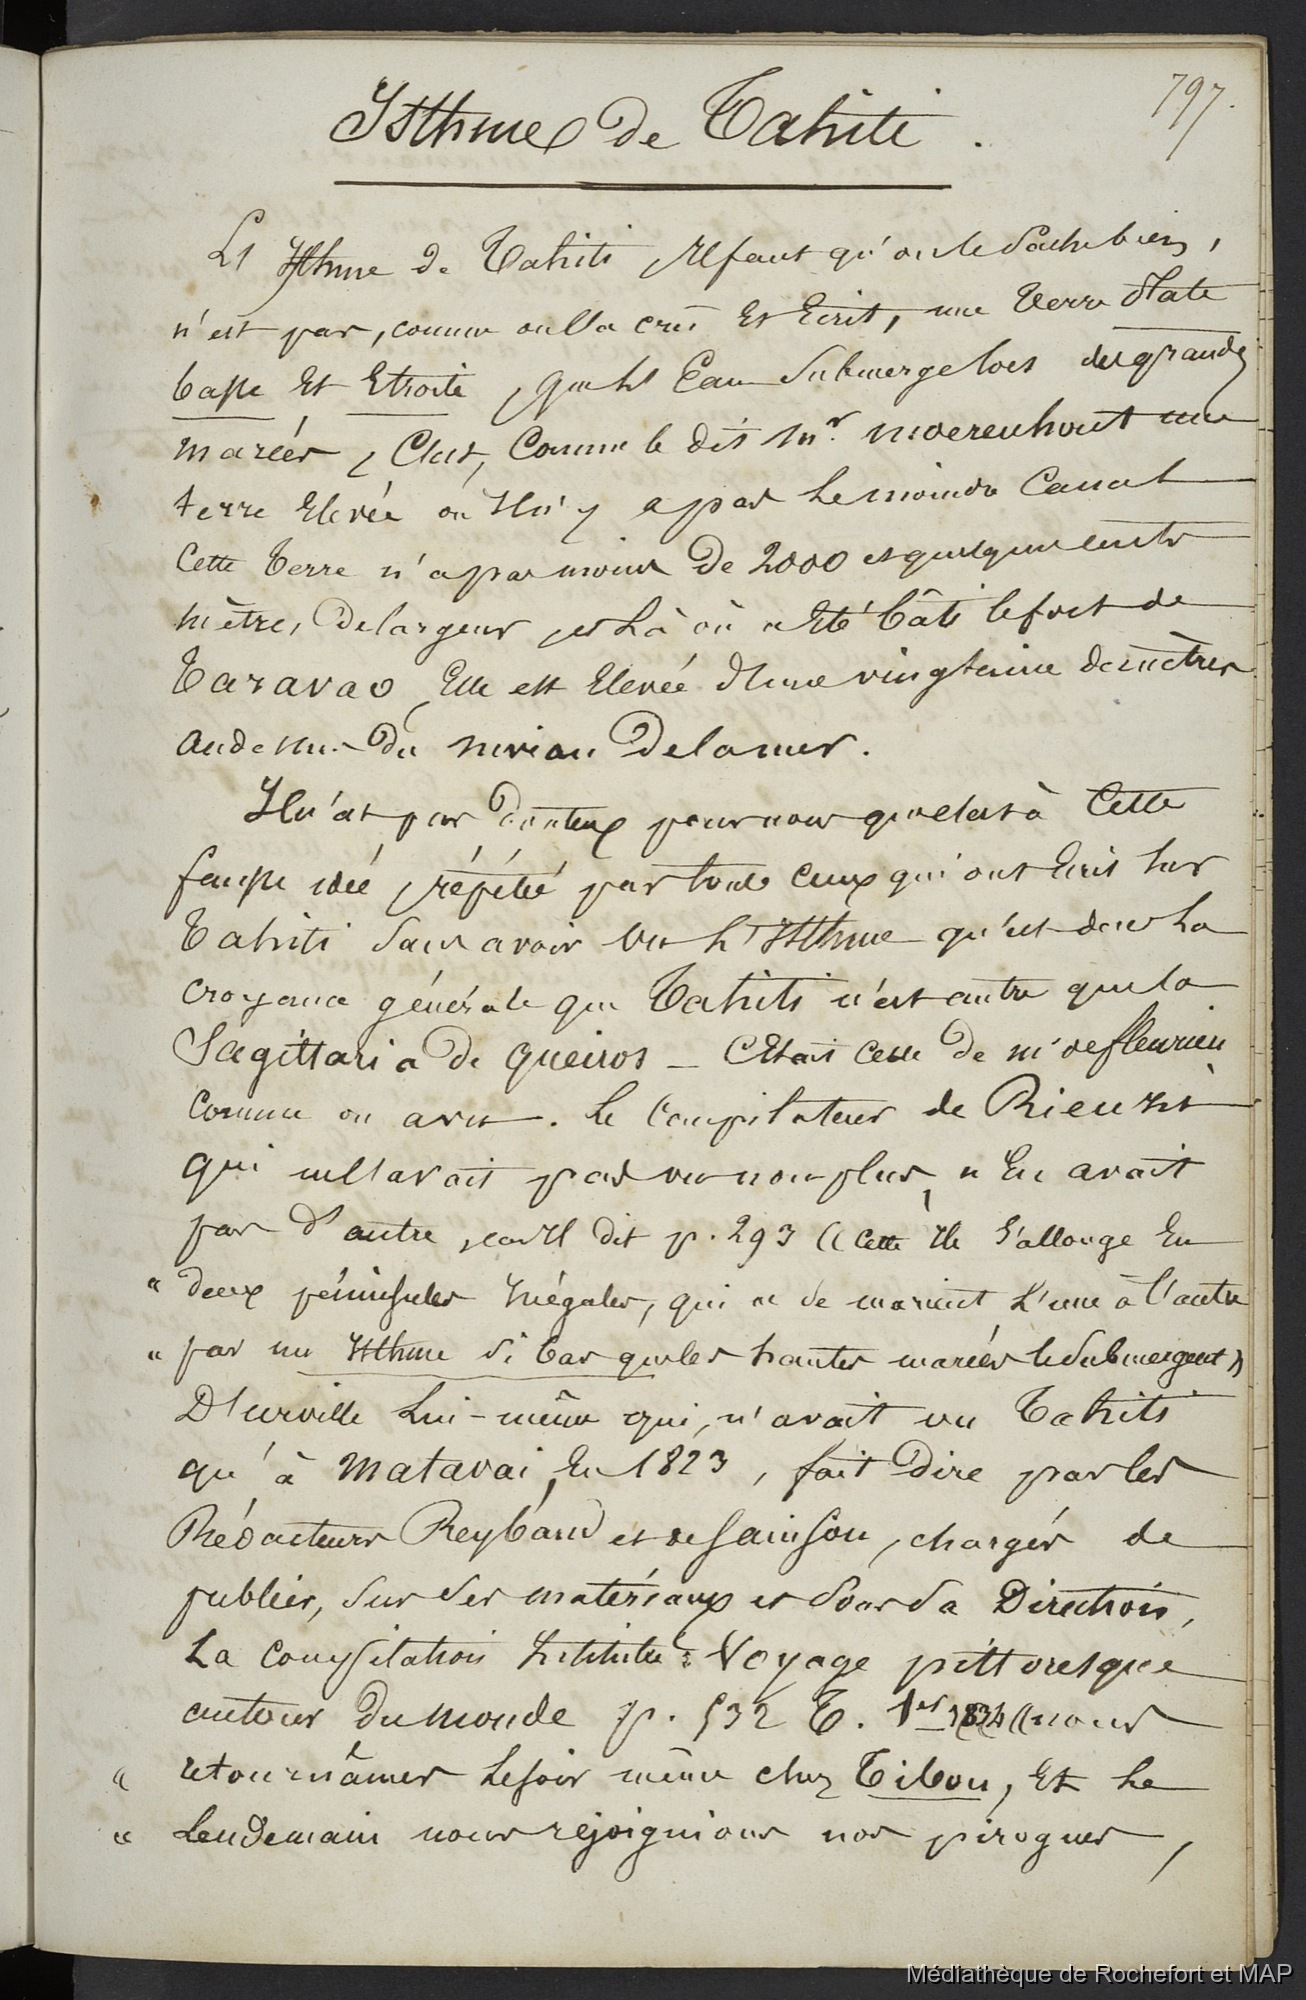 797.
Isthme de Tahiti.
L'Isthme de Tahiti, Il faut qu'on le Sache bien,
n'est pas, comme on l'a cru Et Ecrit, une terre Plate
basse Et Etroite, que l'Eau Submerge lors des grandes
marées, C'est, Comme le dit Mr. Moerenhout une
terre Elevée où Il n'y a pas le moindre Canal
Cette terre n'a pas moins de 2000 et quelques cents
mètres De largeur, et là où a Eté bâti le fort de
Taravao, Elle est Elevée d'une vingtaine de mètres
au dessus Du niveau De la mer.
Il n'est pas Douteux pour nous que c'est à Cette
fausse idée, répétée par tous ceux qui ont Ecrit Sur
Tahiti Sans avoir vu l'Isthme qu'est due la
croyance générale que Tahiti n'est autre que la
Sagittaria De Queiros — C'Etait celle de mr de fleurieu
comme on a vu. le Compilateur de Rienzi
qui ne l'avait pas vu non plus, n'En avait
pas D'autre, car Il dit p. 293 « Cette Ile S'allonge En
" deux péninsules Inégales, qui se marient l'une à l'autre
" par un Isthme Si bas que les hautes marées le Submergent »
D'urville Lui-même qui, n'avait vu Tahiti
qu'à Matavai, En 1823, fait Dire par les
Rédacteurs Reybaud et de Sainson, chargés de
publier, Sur Ses matériaux et Sous Sa Direction,
La Compilation Intitulée : Voyage pittoresque
autour Du Monde p. 532 T. 1er 1834 « nous
" retournâmes le Soir même chez Tibou, Et le
" Lendemain nous rejoignions nos pirogues,
Médiathèque de Rochefort et MAP